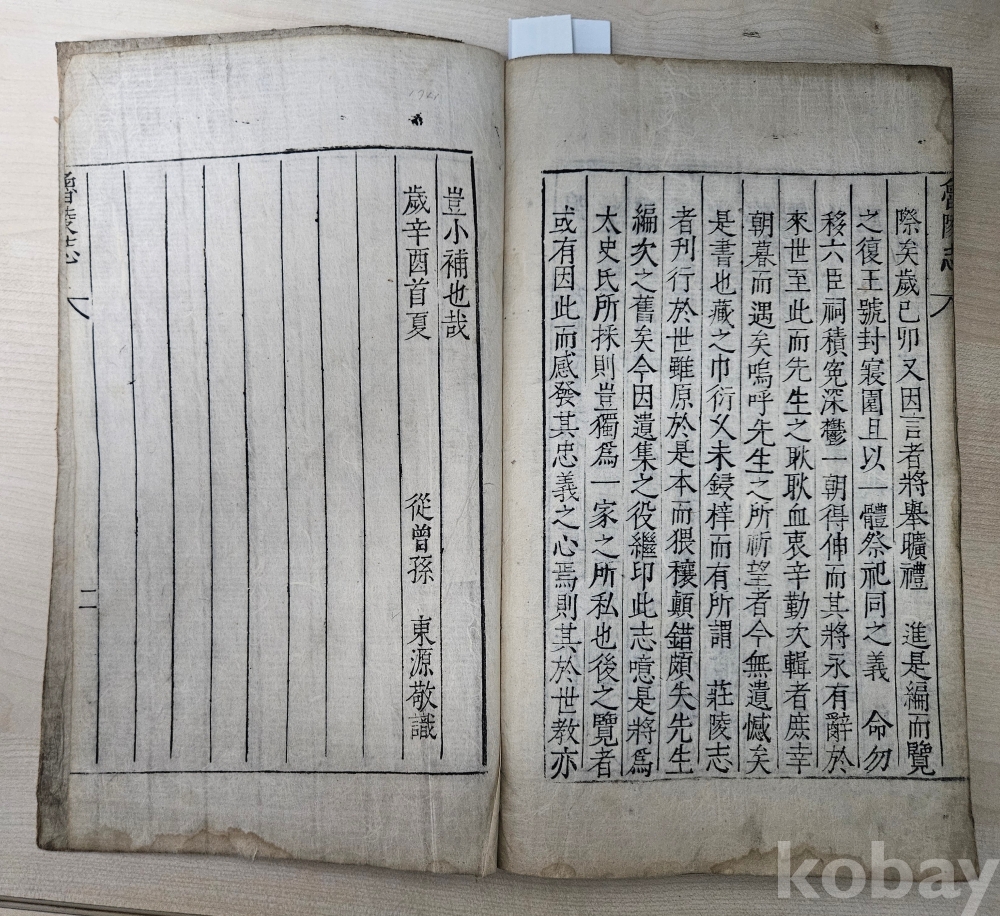 魯陵志
際矣歲己卯又因言者將舉曠禮 進是編而覽
之復王號封寢園且以一體祭祀同之義 命勿
移六臣祠積寃深鬱一朝得伸而其將永有辭於
來世至此而先生之耿耿血衷辛勤次輯者庶幸
朝暮而遇矣嗚呼先生之所祈望者今無遺憾矣
是書也藏之巾衍久未鋟梓而有所謂 莊陵志
者刊行於世雖原於是本而猥穰顛錯頗失先生
編次之舊矣今因遺集之役繼印此志噫是將爲
太史氏所採則豈獨爲一家之所私也後之覽者
或有因此而感發其忠義之心焉則其於世教亦
豈小補也哉
歲辛酉首夏 從曾孫 東源敬識
魯陵志
二
kobay